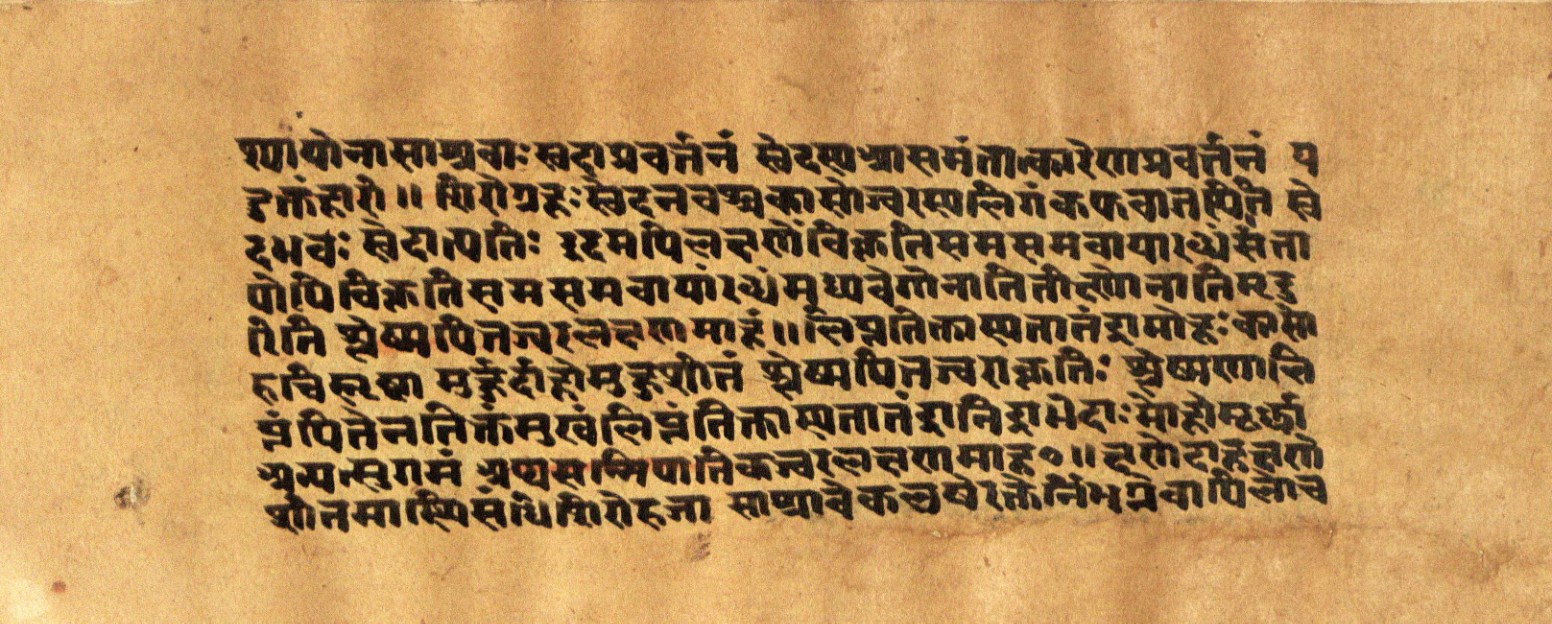 श्यायोनासाश्रवाः स्वेदाप्रवर्त्तनं स्वेदस्पाभ्यासमंताकारेणाप्रवर्त्तनं य
दुक्तंहारी॥ शिरोग्रहः स्वेदनवश्चकासोज्वरस्यलिगंकफवातपित्ते स्वे
दभवः स्वेदात्पतिः इदमपिलक्षणेविकृतिसमसमवायारब्धं संता
पोपिविकृतिसमसमवायारब्धंमध्यवेगोनातितीक्ष्णोनातिमृदु
रिति श्लेष्मपित्तज्वरलक्षणमाह॥लिप्ततिक्तास्यतातंद्रामोहः कासो
रुचिस्तृषा मुहुर्दाहोमुहुशीतं श्लेष्मपित्तज्वराकृतिः श्लेष्मणालि
प्तंपित्तेनतिक्तंमुखंलिप्तंतिक्तास्यतातंद्रानिद्राभेदाः मोहोमूर्छा
अन्यत्सुगमं अथसन्निपातिकज्वरलक्षणमाह॰॥क्षणेदाहक्षणे
शीतमास्थिसंधिशिरोरुजा सास्रावेकलुषेरक्तेनिर्भुग्नेचापिलोच